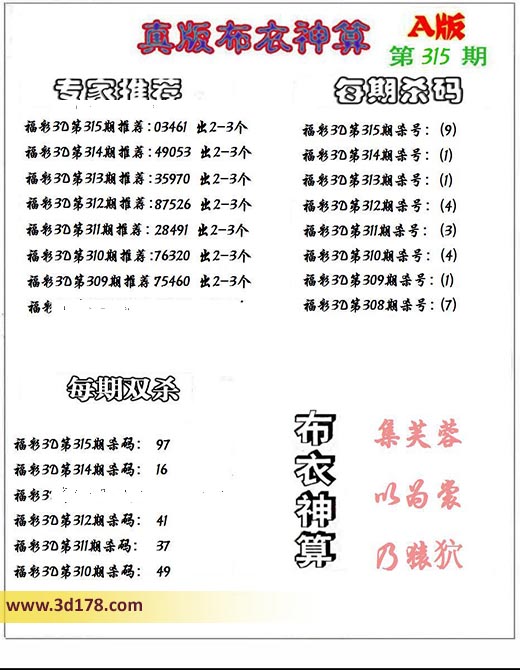 真版布衣神算 A版
第 315 期
专家推荐
福彩3D第315期推荐:03461 出2-3个
福彩3D第314期推荐:49053 出2-3个
福彩3D第313期推荐:35970 出2-3个
福彩3D第312期推荐:87526 出2-3个
福彩3D第311期推荐:28491 出2-3个
福彩3D第310期推荐:76320 出2-3个
福彩3D第309期推荐75460 出2-3个
福彩
每期杀码
福彩3D第315期杀号: (9)
福彩3D第314期杀号: (1)
福彩3D第313期杀号: (1)
福彩3D第312期杀号: (4)
福彩3D第311期杀号: (3)
福彩3D第310期杀号: (4)
福彩3D第309期杀号: (1)
福彩3D第308期杀号: (7)
每期双杀
福彩3D第315期杀码: 97
福彩3D第314期杀码: 16
福彩3
福彩3D第312期杀码: 41
福彩3D第311期杀码: 37
福彩3D第310期杀码: 49
布衣神算
集芙蓉
以为裳
乃猿狖
www.3d178.com